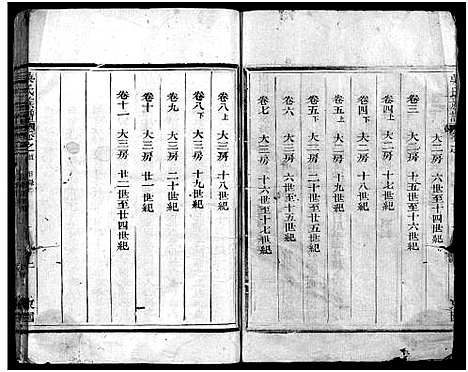 大二房 六世至十四世紀
卷三 大二房 十五世至十六世紀
卷四上 大二房 十七世紀
卷四下 大二房 十八世紀
卷五上 大二房 十九世紀
卷五下 大二房
卷六 大三房 六世至十五世紀
卷七 大三房 十六世至十七世紀
卷八上 大三房 十八世紀
卷八下 大三房 十九世紀
卷九 大三房 二十世紀
卷十 大三房 廿一世紀
卷十一 大三房 廿二世至廿四世紀
吳氏族譜